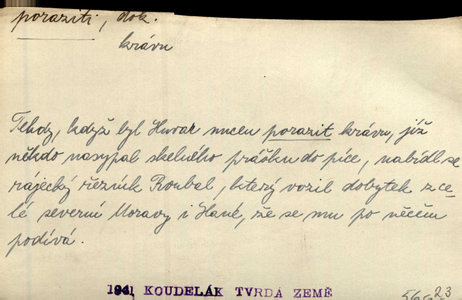 poraziti, dok.
krávu
Tehdy, když byl Huvar nucen porazit krávu, jíž
někdo nasypal skelného prášku do píce, nabídl se
rájecký řezník Roubal, který vozil dobytek z ce-
lé severní Moravy i Hané, že se mu po něčem
podívá.
1941 KOUDELÁK TVRDÁ ZEMĚ
23